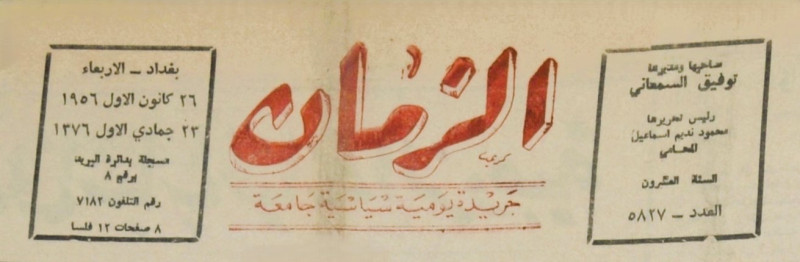 صاحبها ومديرها
توفيق السمعاني
رئيس تحريرها
محمود نديم اسماعيل
المحامي
السنة العشرون
العدد ــ ٥٨٢٧
الزمان
كريم
جريدة يومية سياسية جامعة
بغداد ــ الاربعاء
٢٦ كانون الاول ١٩٥٦
٢٣ جمادي الاول ١٣٧٦
مسجلة بدائرة البريد
برقم ٨
رقم التلفون ٧١٨٢
٨ صفحات ١٢ فلسا